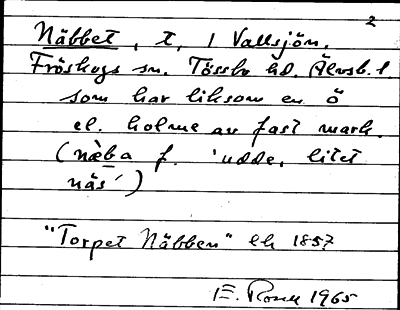 2
Näbbet, t, i Vallsjön,
Fröskogs sn. Tössbo hd. Älvsb. l
som har liksom en ö
el. holme av fast mark.
(næ̀ba f. 'udde, litet
näs')
"Torpet Näbben" hk 1857
E. 1965